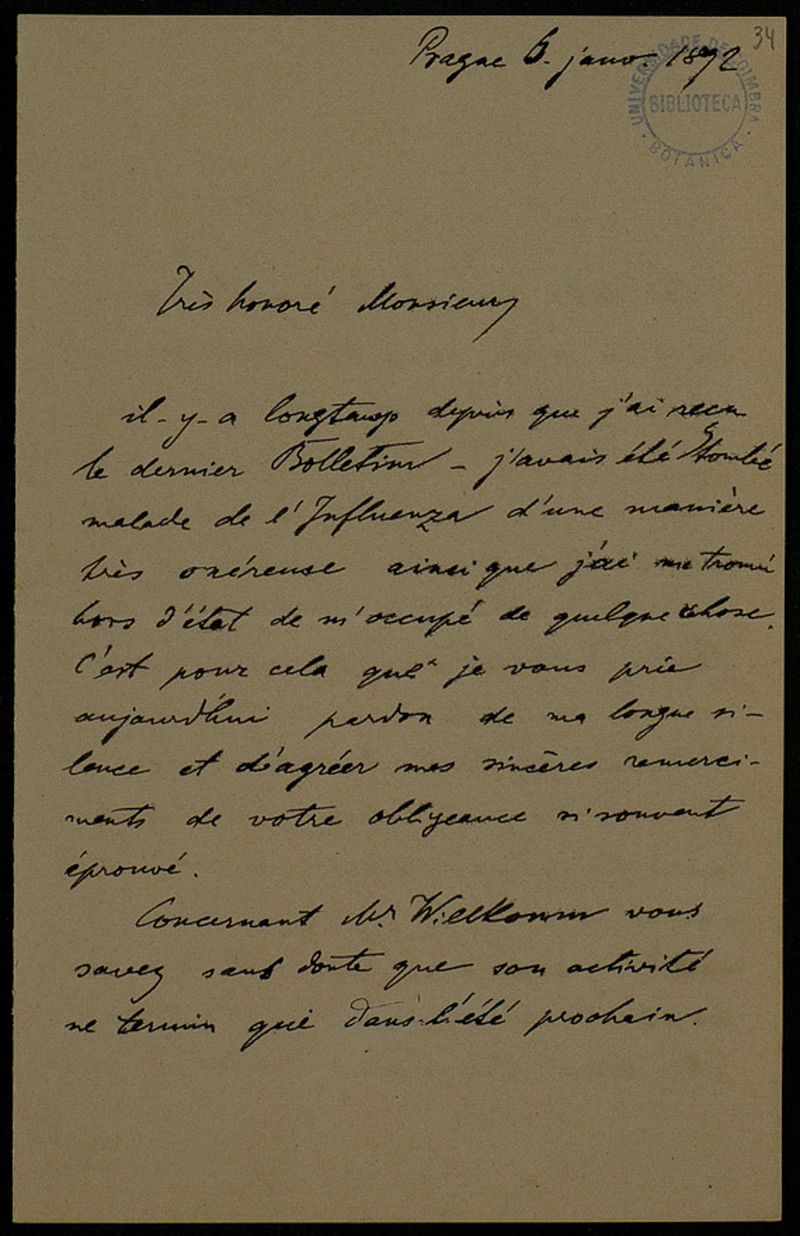 34
Prague 6. janv. 1892
UNIVERSIDADE DE COIMBRA
BIBLIOTECA
BOTANICA
Très honoré Monsieur
il-y-a longtemp depuis que j'ai recu
le dernier Bolletim - j'avais été tombé
malade de l'Influenza d'une manière
très onéreuse ainsi que j'ai me trouvé
hors d'état de m'occupé de quelque chose.
C'est pour cela que je vous prie
aujourd'hui pardon de ma longue si-
lence et d'agréer mes sincères remerci-
ments de votre obligeance si souvent
éprouvé.
Concernant Mr. Willkomm vous
savez sans doute que son activité
ne termin que dans l'été prochain.